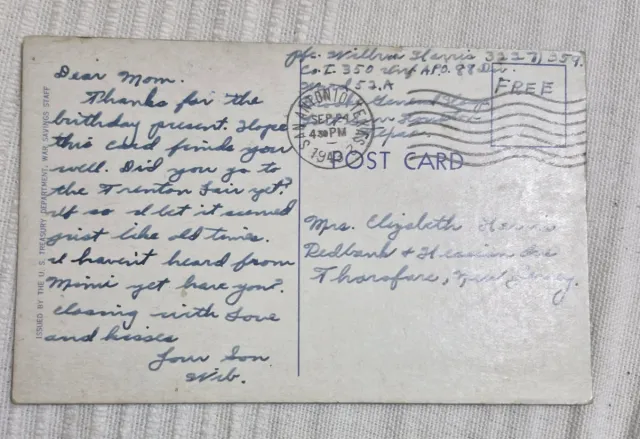 Dear Mom.
Thanks for the
birthday present. Hope
this card finds you
well. Did you go to
the Trenton Fair yet?
If so I bet it seemed
just like old times.
I haven't heard from
Mimi yet have you?
Closing with Love
and kisses
Your Son
Wib.
ISSUED BY THE U. S. TREASURY DEPARTMENT, WAR SAVINGS STAFF
Pfc. Wilbur Harris 32271359.
Co. I. 350 Inf A.P.O. 88 Div.
Houston
Texas
FREE
SAN ANTONIO, TEXAS
SEP 24
430 PM
1943
POST CARD
Mrs. Elizabeth Harris
Redbank & Hessian Ave
Thorofare, New Jersey.